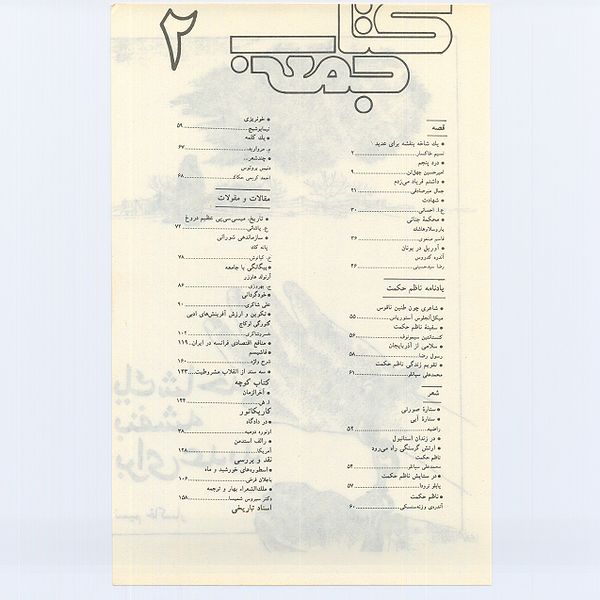 کتاب جمعه
۲
قصه
• یك شاخه بنفشه برای عدید
نسیم خاکسار ۲
• درد پنجم
امیرحسین چهل‌تن ۹
• داشتم فریاد می‌زدم
جمال میرصادقی ۲۱
• شهادت
ع.ا. احسانی ۳۰
• محکمهٔ جنائی
یاروسلاوهاشك
قاسم صنعوی ۳۶
• آوریل در یونان
آندره کدروس
رضا سیدحسینی ۴۶
یادنامه ناظم حکمت
• شاعری چون طنین ناقوس
میگل‌آنجلوس آستوریاس ۵۵
• سفینهٔ ناظم حکمت
کنستانتین سیمونوف ۵۶
• سلامی از آذربایجان
رسول رضا ۵۸
• تقویم زندگی ناظم حکمت
محمدعلی سپانلو ۶۱
شعر
• ستارهٔ صورتی
• ستارهٔ آبی
راضیه ۵۲
• در زندان استانبول
• ارتش گرسنگی راه می‌رود
ناظم حکمت
محمدعلی سپانلو ۵۴
• در ستایش ناظم حکمت
پابلو نرودا ۵۷
• ناظم حکمت
آندره‌ی وزنه‌سنسکی ۶۰
• خونریزی
نیمایوشیج ۵۹
• یك کلمه
م. مروارید ۶۷
• چندشعر...
دنیس بروتوس
احمد کریمی حکاك ۶۸
مقالات و مقولات
• تاریخ، میسی‌سی‌پی عظیم دروغ
ع. پاشائی ۷۲
• سازماندهی شورائی
یانه کاه
خ. کیانوش ۷۸
• بیگانگی با جامعه
آرنولد هاوزر
ج. بهروزی ۸۶
• خودگردانی
علی شاکری ۹۰
• تکوین و ارزش آفرینش‌های ادبی
گئورگی لوکاچ
خسروشاکری ۱۰۲
• منافع اقتصادی فرانسه در ایران ۱۱۹
• فاشیسم
شرح واژه ۱۶۰
• سه سند از انقلاب مشروطیت ۱۴۳
کتاب کوچه
• آخرالزمان
ا.ش ۱۲۴
کاریکاتور
• در دادگاه
اونوره دومیه ۳۸
• رالف استدمن
آمریکا ۱۲۸
نقد و بررسی
• اسطوره‌های خورشید و ماه
باجلان فرخی ۱۰۶
• ملك‌الشعراء بهار و ترجمه
دکتر سیروس شمیسا ۱۵۸
اسناد تاریخی